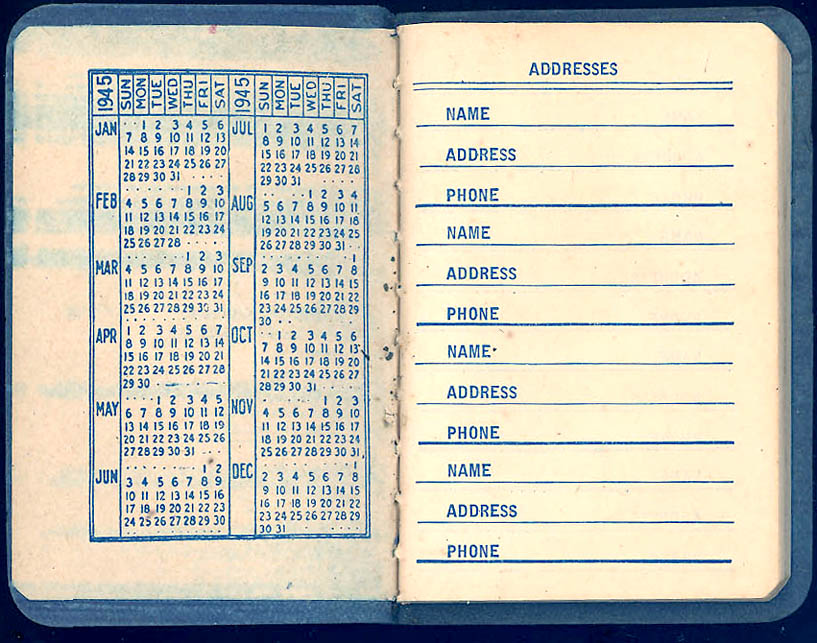 1945 SUN MON TUE WED THU FRI SAT
JAN 1 2 3 4 5 6
7 8 9 10 11 12 13
14 15 16 17 18 19 20
21 22 23 24 25 26 27
28 29 30 31
FEB 1 2 3
4 5 6 7 8 9 10
11 12 13 14 15 16 17
18 19 20 21 22 23 24
25 26 27 28
MAR 1 2 3
4 5 6 7 8 9 10
11 12 13 14 15 16 17
18 19 20 21 22 23 24
25 26 27 28 29 30 31
APR 1 2 3 4 5 6 7
8 9 10 11 12 13 14
15 16 17 18 19 20 21
22 23 24 25 26 27 28
29 30
MAY 1 2 3 4 5
6 7 8 9 10 11 12
13 14 15 16 17 18 19
20 21 22 23 24 25 26
27 28 29 30 31
JUN 1 2
3 4 5 6 7 8 9
10 11 12 13 14 15 16
17 18 19 20 21 22 23
24 25 26 27 28 29 30
1945 SUN MON TUE WED THU FRI SAT
JUL 1 2 3 4 5 6 7
8 9 10 11 12 13 14
15 16 17 18 19 20 21
22 23 24 25 26 27 28
29 30 31
AUG 1 2 3 4
5 6 7 8 9 10 11
12 13 14 15 16 17 18
19 20 21 22 23 24 25
26 27 28 29 30 31
SEP 1
2 3 4 5 6 7 8
9 10 11 12 13 14 15
16 17 18 19 20 21 22
23 24 25 26 27 28 29
30
OCT 1 2 3 4 5 6
7 8 9 10 11 12 13
14 15 16 17 18 19 20
21 22 23 24 25 26 27
28 29 30 31
NOV 1 2 3
4 5 6 7 8 9 10
11 12 13 14 15 16 17
18 19 20 21 22 23 24
25 26 27 28 29 30 31
DEC 1
2 3 4 5 6 7 8
9 10 11 12 13 14 15
16 17 18 19 20 21 22
23 24 25 26 27 28 29
30 31
ADDRESSES
NAME
ADDRESS
PHONE
NAME
ADDRESS
PHONE
NAME
ADDRESS
PHONE
NAME
ADDRESS
PHONE